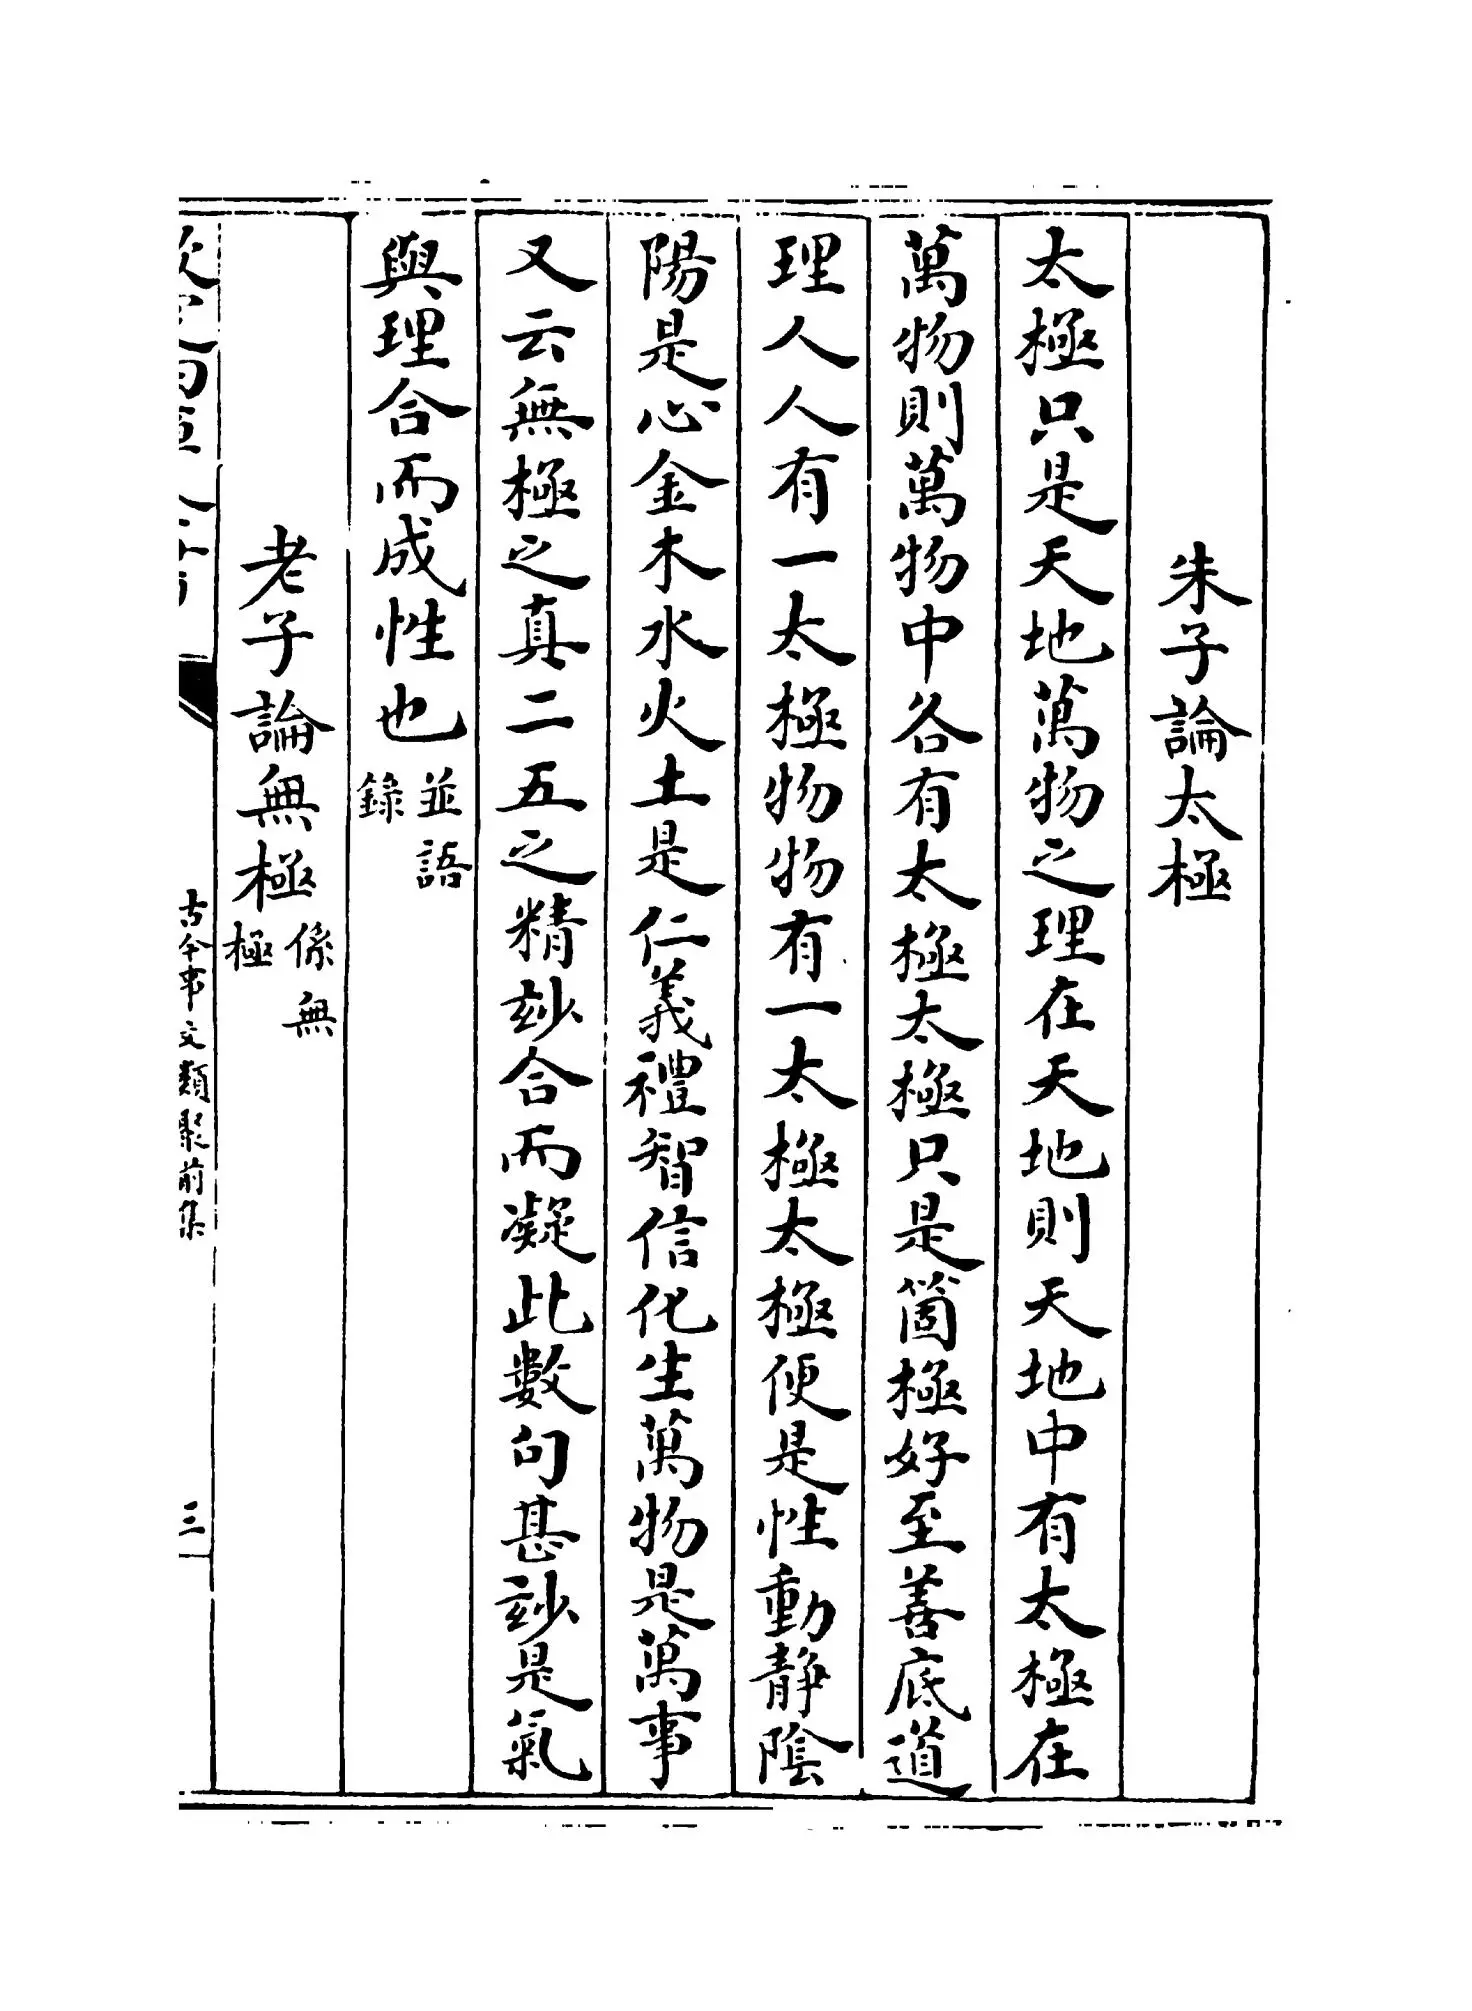 朱子論太極
太極只是天地萬物之理在天地則天地中有太極在
萬物則萬物中各有太極太極只是箇極好至善底道
理人人有一太極物物有一太極太極便是性動靜陰
陽是心金木水火土是仁義禮智信化生萬物是萬事
又云無極之真二五之精玅合而凝此數句甚玅是氣
與理合而成性也並語
錄
老子論無極係無
極
古今事文類聚前集
三